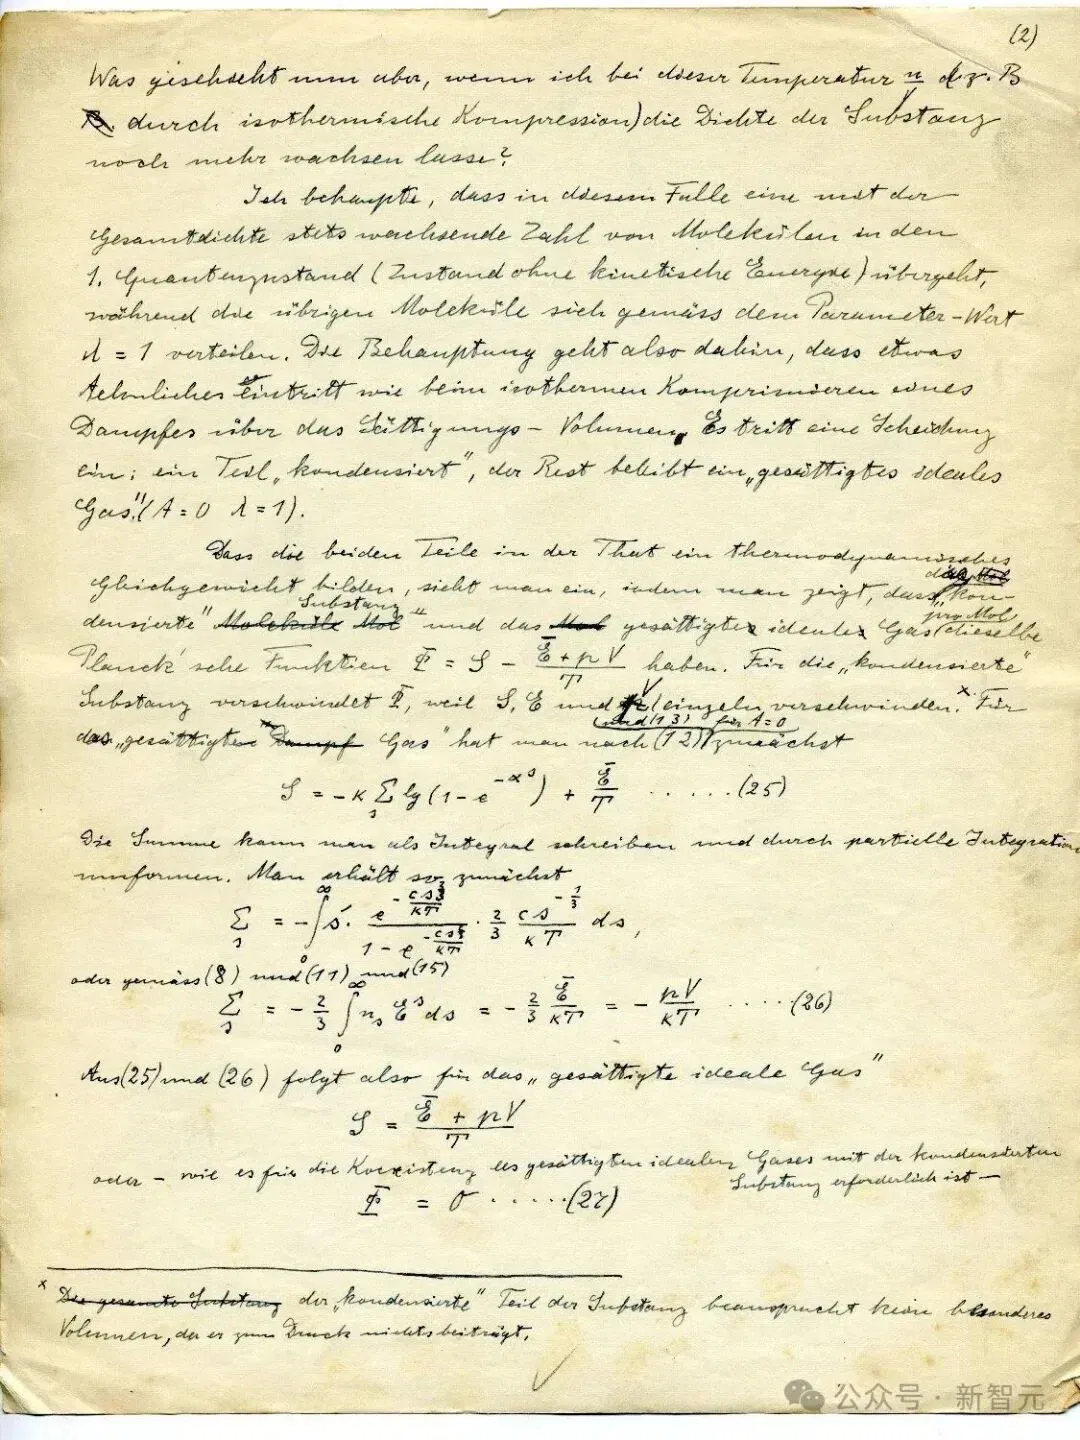 (2)
Was geschieht nun aber, wenn ich bei dieser Temperatur n/V (z. B.
durch isothermische Kompression) die Dichte der Substanz
noch mehr wachsen lasse?
Ich behaupte, dass in diesem Falle eine mit der
Gesamtdichte stets wachsende Zahl von Molekülen in den
1. Quantenzustand (Zustand ohne kinetische Energie) übergeht,
während die übrigen Moleküle sich gemäss dem Parameter-Wert
λ = 1 verteilen. Die Behauptung geht also dahin, dass etwas
Aehnliches eintritt wie beim isothermen Komprimieren eines
Dampfes über das Sättigungs-Volumen. Es tritt eine Scheidung
ein; ein Teil „kondensiert", der Rest bleibt ein „gesättigtes ideales
Gas". (A = 0 λ = 1).
Dass die beiden Teile in der That ein thermodynamisches
Gleichgewicht bilden, sieht man ein, indem man zeigt, dass die „kon-
densierte" Substanz und das gesättigte ideale Gas pro Mol dieselbe
Planck'sche Funktion Φ = S − (Ē + pV)/T haben. Für die „kondensierte"
Substanz verschwindet Φ, weil S, E und V einzeln verschwinden.ˣ Für
das „gesättigte Gas" hat man nach (12) und (13) für A = 0 zunächst
S = −κ Σₛ lg (1 − e^(−αˢ)) + Ē/T . . . . . . (25)
Die Summe kann man als Integral schreiben und durch partielle Integration
umformen. Man erhält so zunächst
Σₛ = −∫₀^∞ s · e^(−cs^(2/3)/κT) / (1 − e^(−cs^(2/3)/κT)) · 2/3 cs^(−1/3)/κT ds,
oder gemäss (8) und (11) und (15)
Σₛ = −2/3 ∫₀^∞ nₛ Eˢ ds = −2/3 Ē/κT = −pV/κT . . . . . (26)
Aus (25) und (26) folgt also für das „gesättigte ideale Gas"
S = (Ē + pV)/T
oder – wie es für die Koexistenz des gesättigten idealen Gases mit der kondensierten
Substanz erforderlich ist –
Φ = 0 . . . . . (27)
ˣ Die gesamte Substanz der „kondensierte" Teil der Substanz beansprucht kein besonderes
Volumen, da er zum Druck nichts beiträgt.
公众号 · 新智元